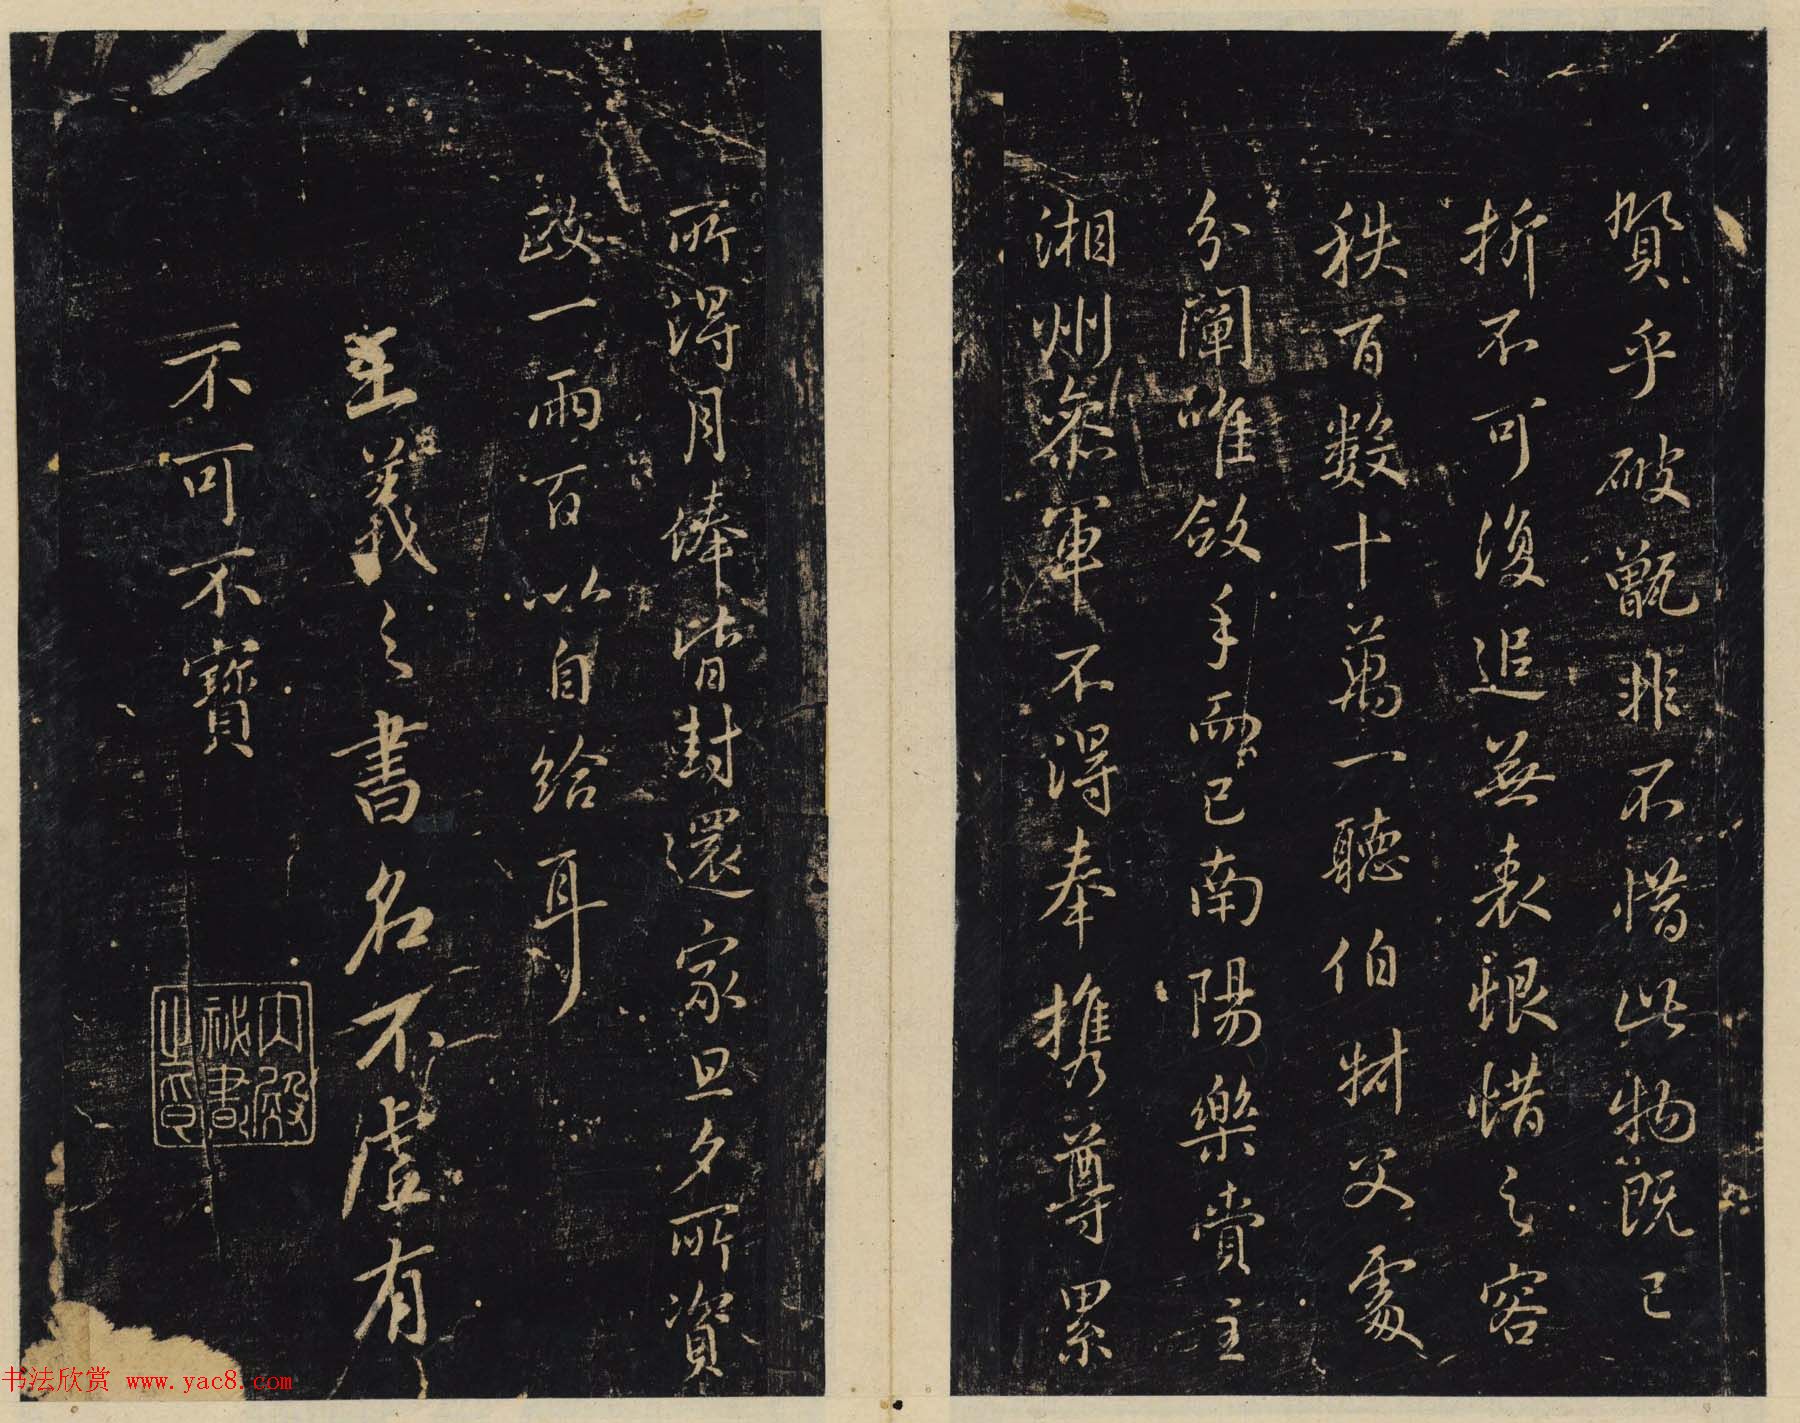 賢乎破甑非不惜此物既已
折不可復追無表恨惜之容
秩百數十萬一聽伯財父處
分闡唯斂手而已南陽樂賞主
湘州參軍不得奉携尊累
所得月俸皆封還家旦夕所資
政一兩百以自給耳
王羲之書名不虛有
不可不寶
內殿
祕書
之印
书法欣赏 www.yac8.com